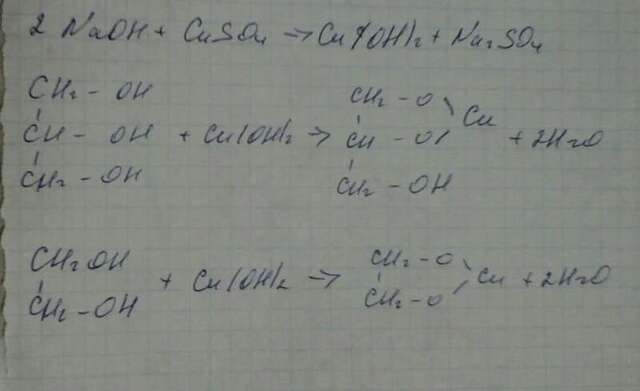 2 NaOH + CuSO4 → Cu(OH)2 + Na2SO4
CH2 - OH CH2 - O
CH - OH + Cu(OH)2 → CH - O Cu + 2H2O
CH2 - OH CH2 - OH
CH2OH CH2 - O
+ Cu(OH)2 → Cu + 2H2O
CH2 - OH CH2 - O